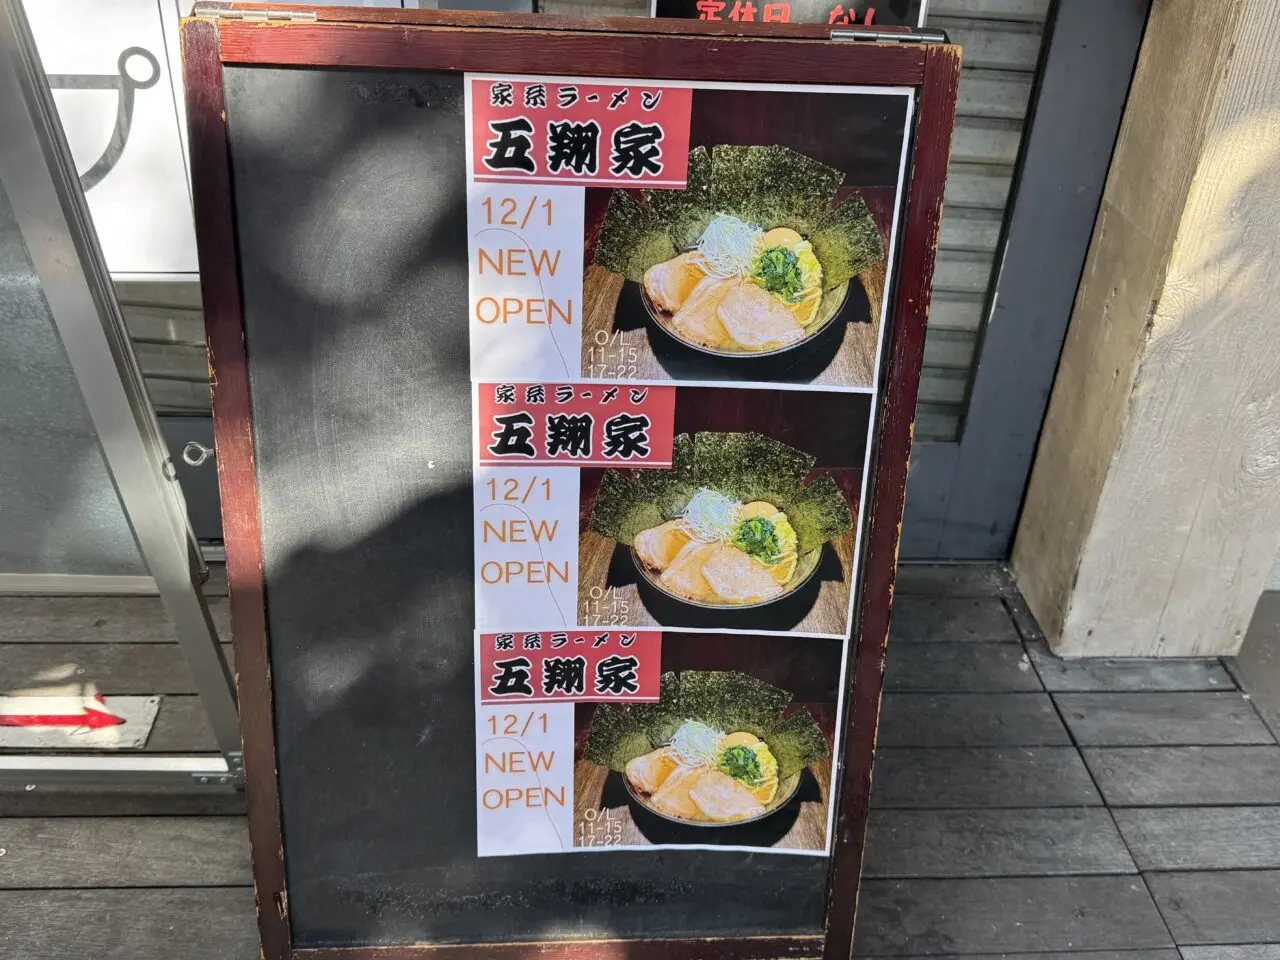 定休日 なし
家系ラーメン
五翔家
12/1
NEW
OPEN
O/L
11-15
17-22
家系ラーメン
五翔家
12/1
NEW
OPEN
O/L
11-15
17-22
家系ラーメン
五翔家
12/1
NEW
OPEN
O/L
11-15
17-22